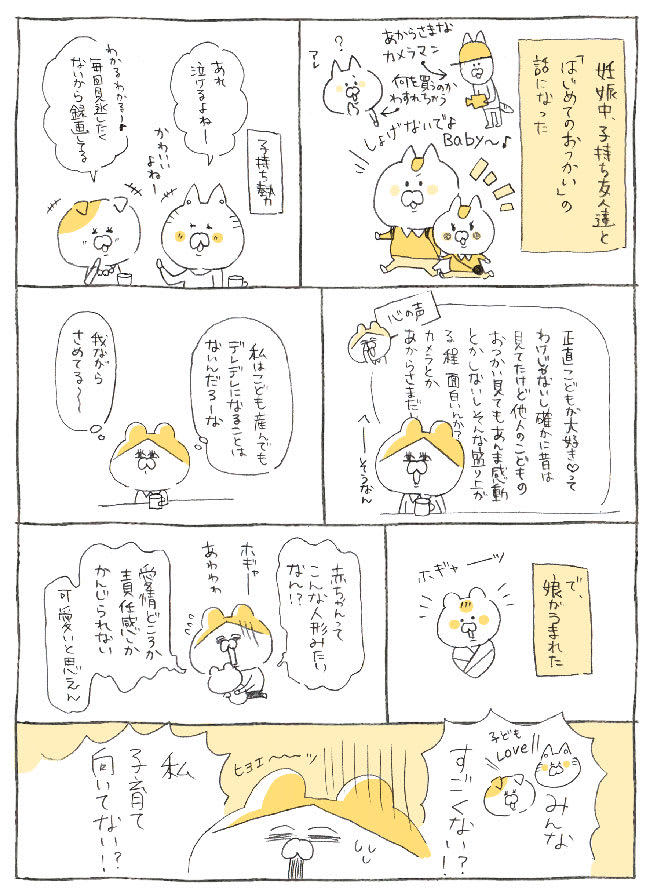 妊娠中、子持ち友人達と
「はじめてのおつかい」の
話になった
あからさまな
カメラマン
何を買うのか
わすれちゃう
?
アレ
しょげないでよ
Baby〜♪
子持ち勢
あれ
泣けるよねー
かわいい
よねー
わかるわかるー♪
毎回見逃したく
ないから録画してる
心の声
正直こどもが大好き♡って
わけじゃないし確かに昔は
見てたけど他人のこどもの
おつかい見てもあんま感動
とかしないしそんな盛り上が
る程面白いんか?
カメラとか
あからさまだし
へーーそうなん
私はこども産んでも
デレデレになることは
ないんだろーな
我ながら
さめてる〜〜
で、
娘がうまれた
ホギャーーツ
赤ちゃんって
こんな人形みたい
なん!?
ホギャー
あわわわ
愛情どころか
責任感しか
かんじられない
可愛いと思えん
子ども
Love!!
みんな
すごくない!?
ヒョエ〜〜ッ
私
子育て
向いてない!?!